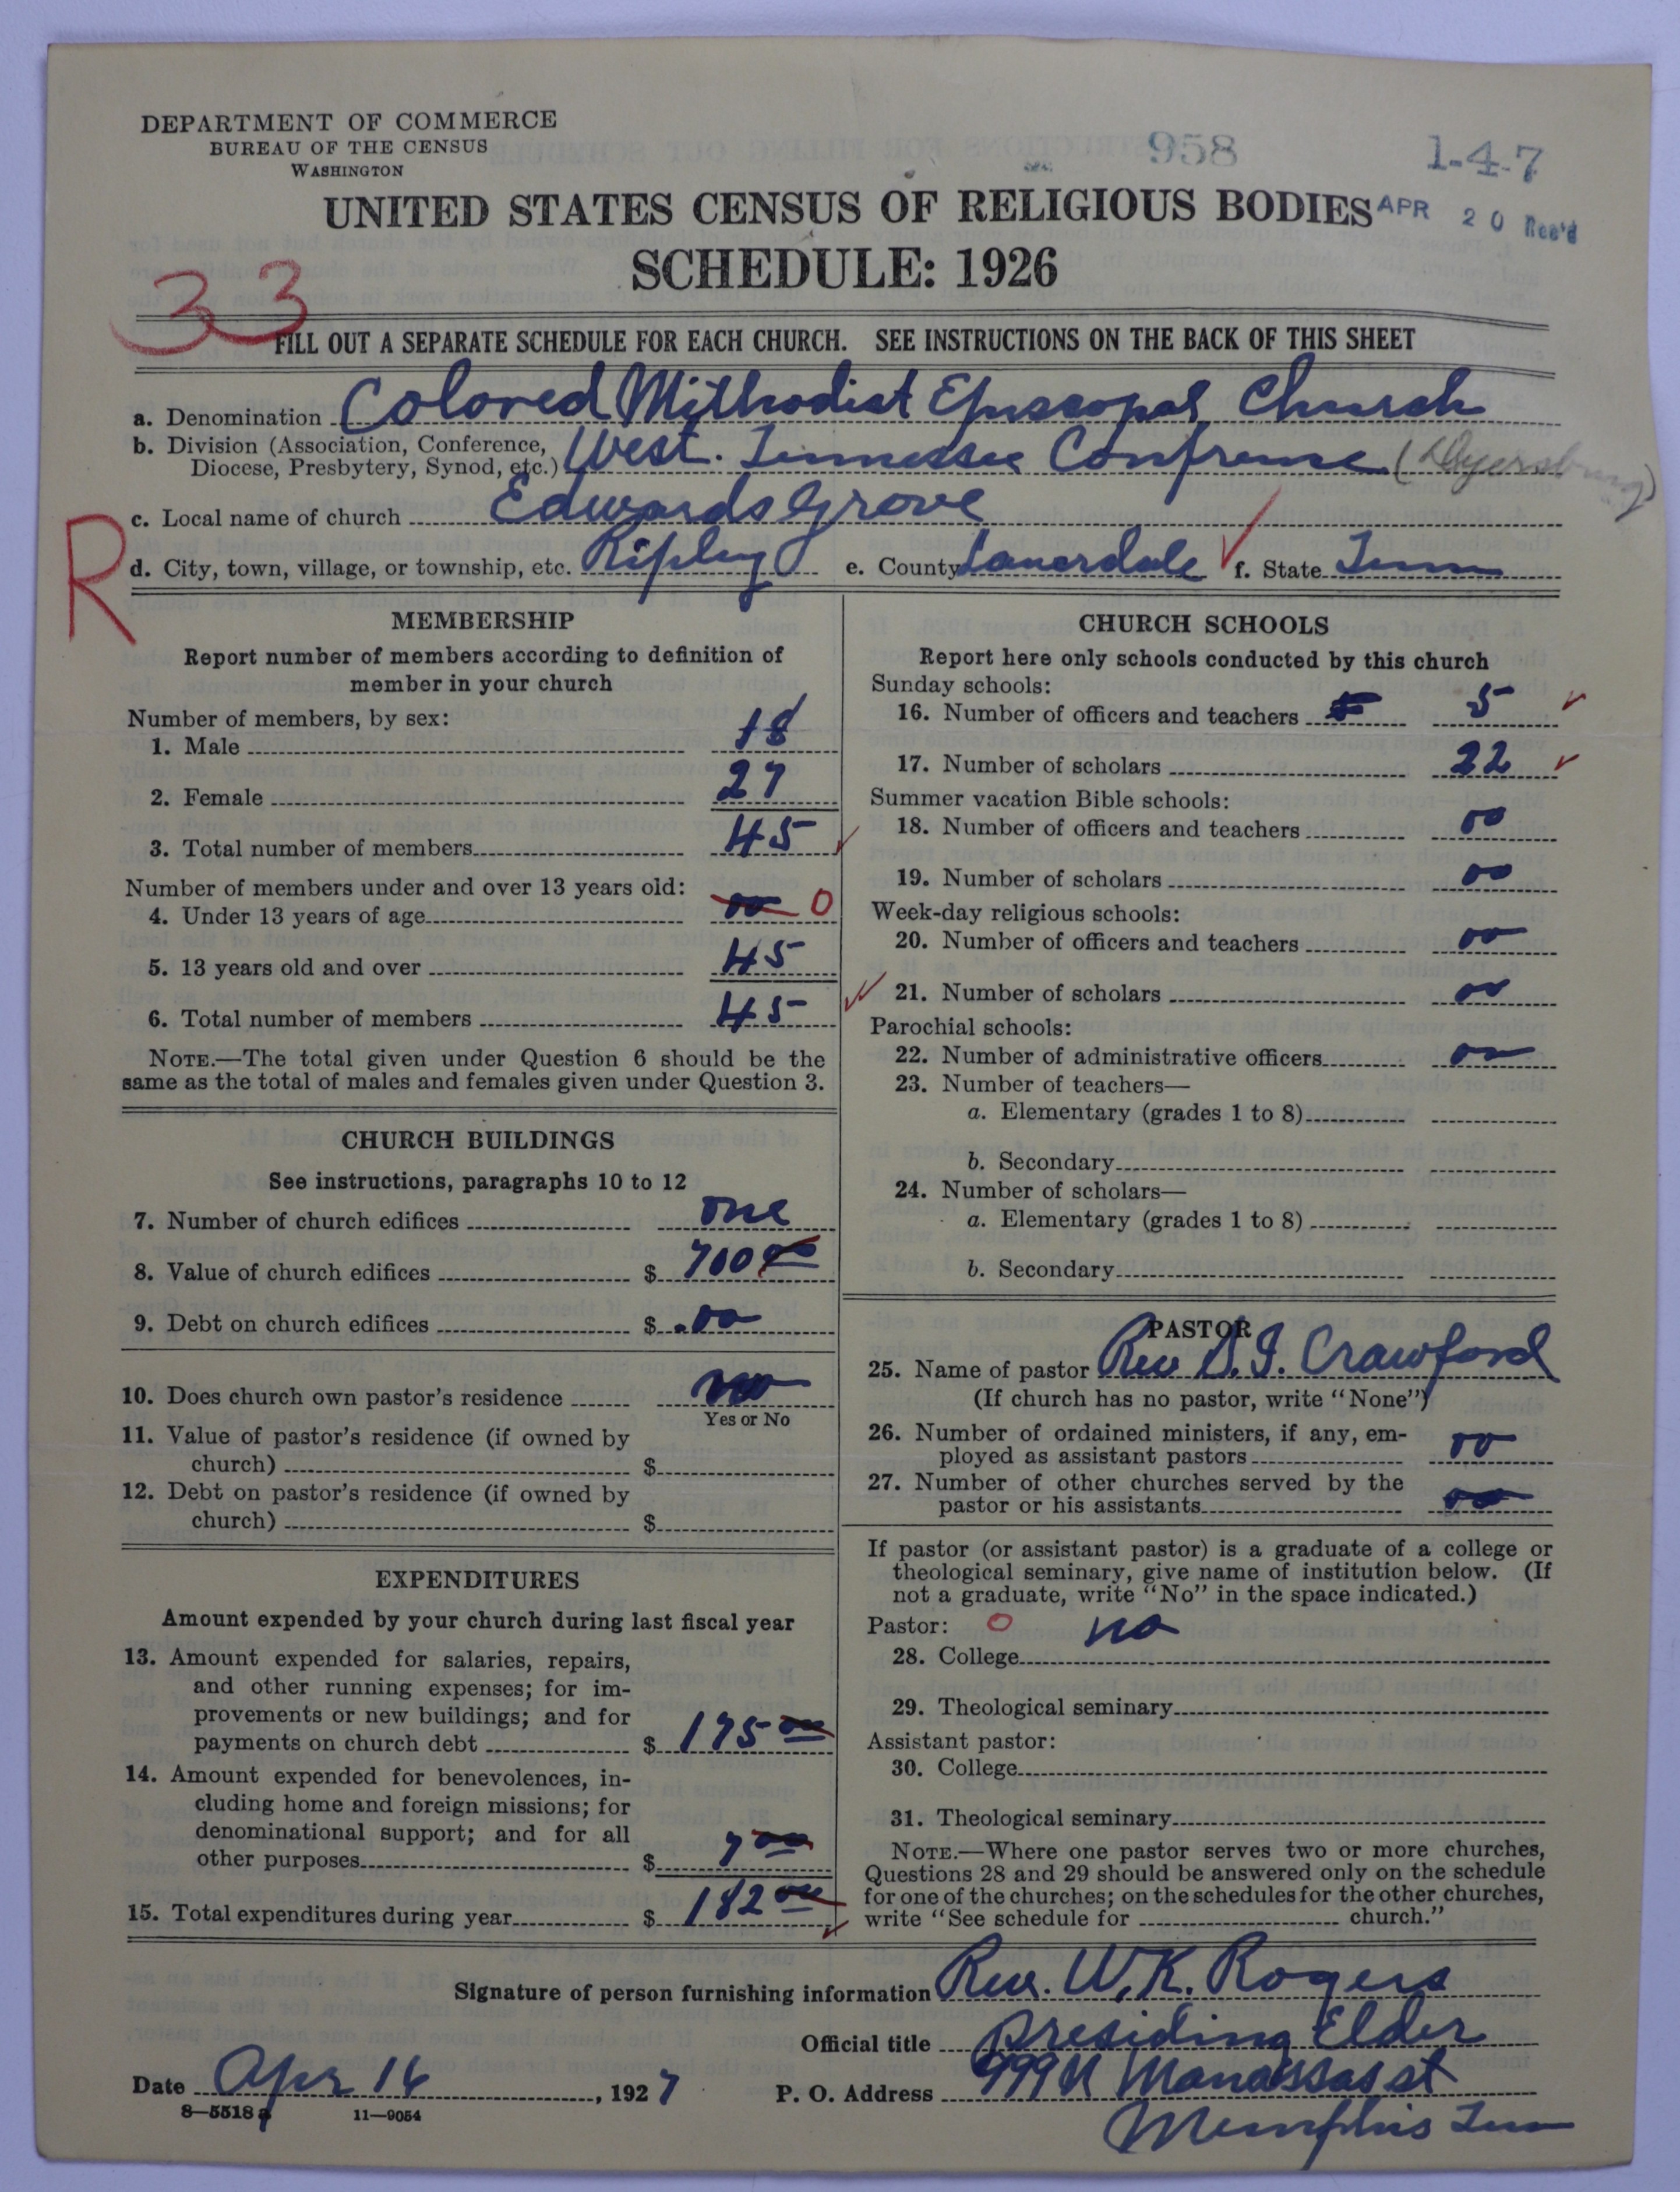 DEPARTMENT OF COMMERCE
BUREAU OF THE CENSUS
WASHINGTON
958
1-4-7
UNITED STATES CENSUS OF RELIGIOUS BODIES
APR 20 Rec'd
SCHEDULE: 1926
33
FILL OUT A SEPARATE SCHEDULE FOR EACH CHURCH. SEE INSTRUCTIONS ON THE BACK OF THIS SHEET
a. Denomination Colored Methodist Episcopal Church
b. Division (Association, Conference,
Diocese, Presbytery, Synod, etc.) West. Tennessee Confrence (Dyersburg)
c. Local name of church Edwards Grove
R
d. City, town, village, or township, etc. Ripley e. County Lauerdale f. State Tenn
MEMBERSHIP
Report number of members according to definition of
member in your church
Number of members, by sex:
1. Male 18
2. Female 27
3. Total number of members 45
Number of members under and over 13 years old:
4. Under 13 years of age 00 0
5. 13 years old and over 45
6. Total number of members 45
NOTE.—The total given under Question 6 should be the
same as the total of males and females given under Question 3.
CHURCH BUILDINGS
See instructions, paragraphs 10 to 12
7. Number of church edifices one
8. Value of church edifices $ 700 00
9. Debt on church edifices $ .00
10. Does church own pastor's residence no
Yes or No
11. Value of pastor's residence (if owned by
church) $
12. Debt on pastor's residence (if owned by
church) $
EXPENDITURES
Amount expended by your church during last fiscal year
13. Amount expended for salaries, repairs,
and other running expenses; for im-
provements or new buildings; and for
payments on church debt $ 175 00
14. Amount expended for benevolences, in-
cluding home and foreign missions; for
denominational support; and for all
other purposes $ 7 00
15. Total expenditures during year $ 182 00
CHURCH SCHOOLS
Report here only schools conducted by this church
Sunday schools:
16. Number of officers and teachers 5 5
17. Number of scholars 22
Summer vacation Bible schools:
18. Number of officers and teachers 00
19. Number of scholars 00
Week-day religious schools:
20. Number of officers and teachers 00
21. Number of scholars 00
Parochial schools:
22. Number of administrative officers 00
23. Number of teachers—
a. Elementary (grades 1 to 8)
b. Secondary
24. Number of scholars—
a. Elementary (grades 1 to 8)
b. Secondary
PASTOR
25. Name of pastor Rev D.I. Crawford
(If church has no pastor, write "None")
26. Number of ordained ministers, if any, em-
ployed as assistant pastors 00
27. Number of other churches served by the
pastor or his assistants 00
If pastor (or assistant pastor) is a graduate of a college or
theological seminary, give name of institution below. (If
not a graduate, write "No" in the space indicated.)
Pastor: 0 no
28. College
29. Theological seminary
Assistant pastor:
30. College
31. Theological seminary
NOTE.—Where one pastor serves two or more churches,
Questions 28 and 29 should be answered only on the schedule
for one of the churches; on the schedules for the other churches,
write "See schedule for church."
Signature of person furnishing information Rev. W.K. Rogers
Official title Presiding Elder
Date Apr 16, 1927 P. O. Address 999 N Manassas st
8—5518a 11—9054
Memphis Tenn